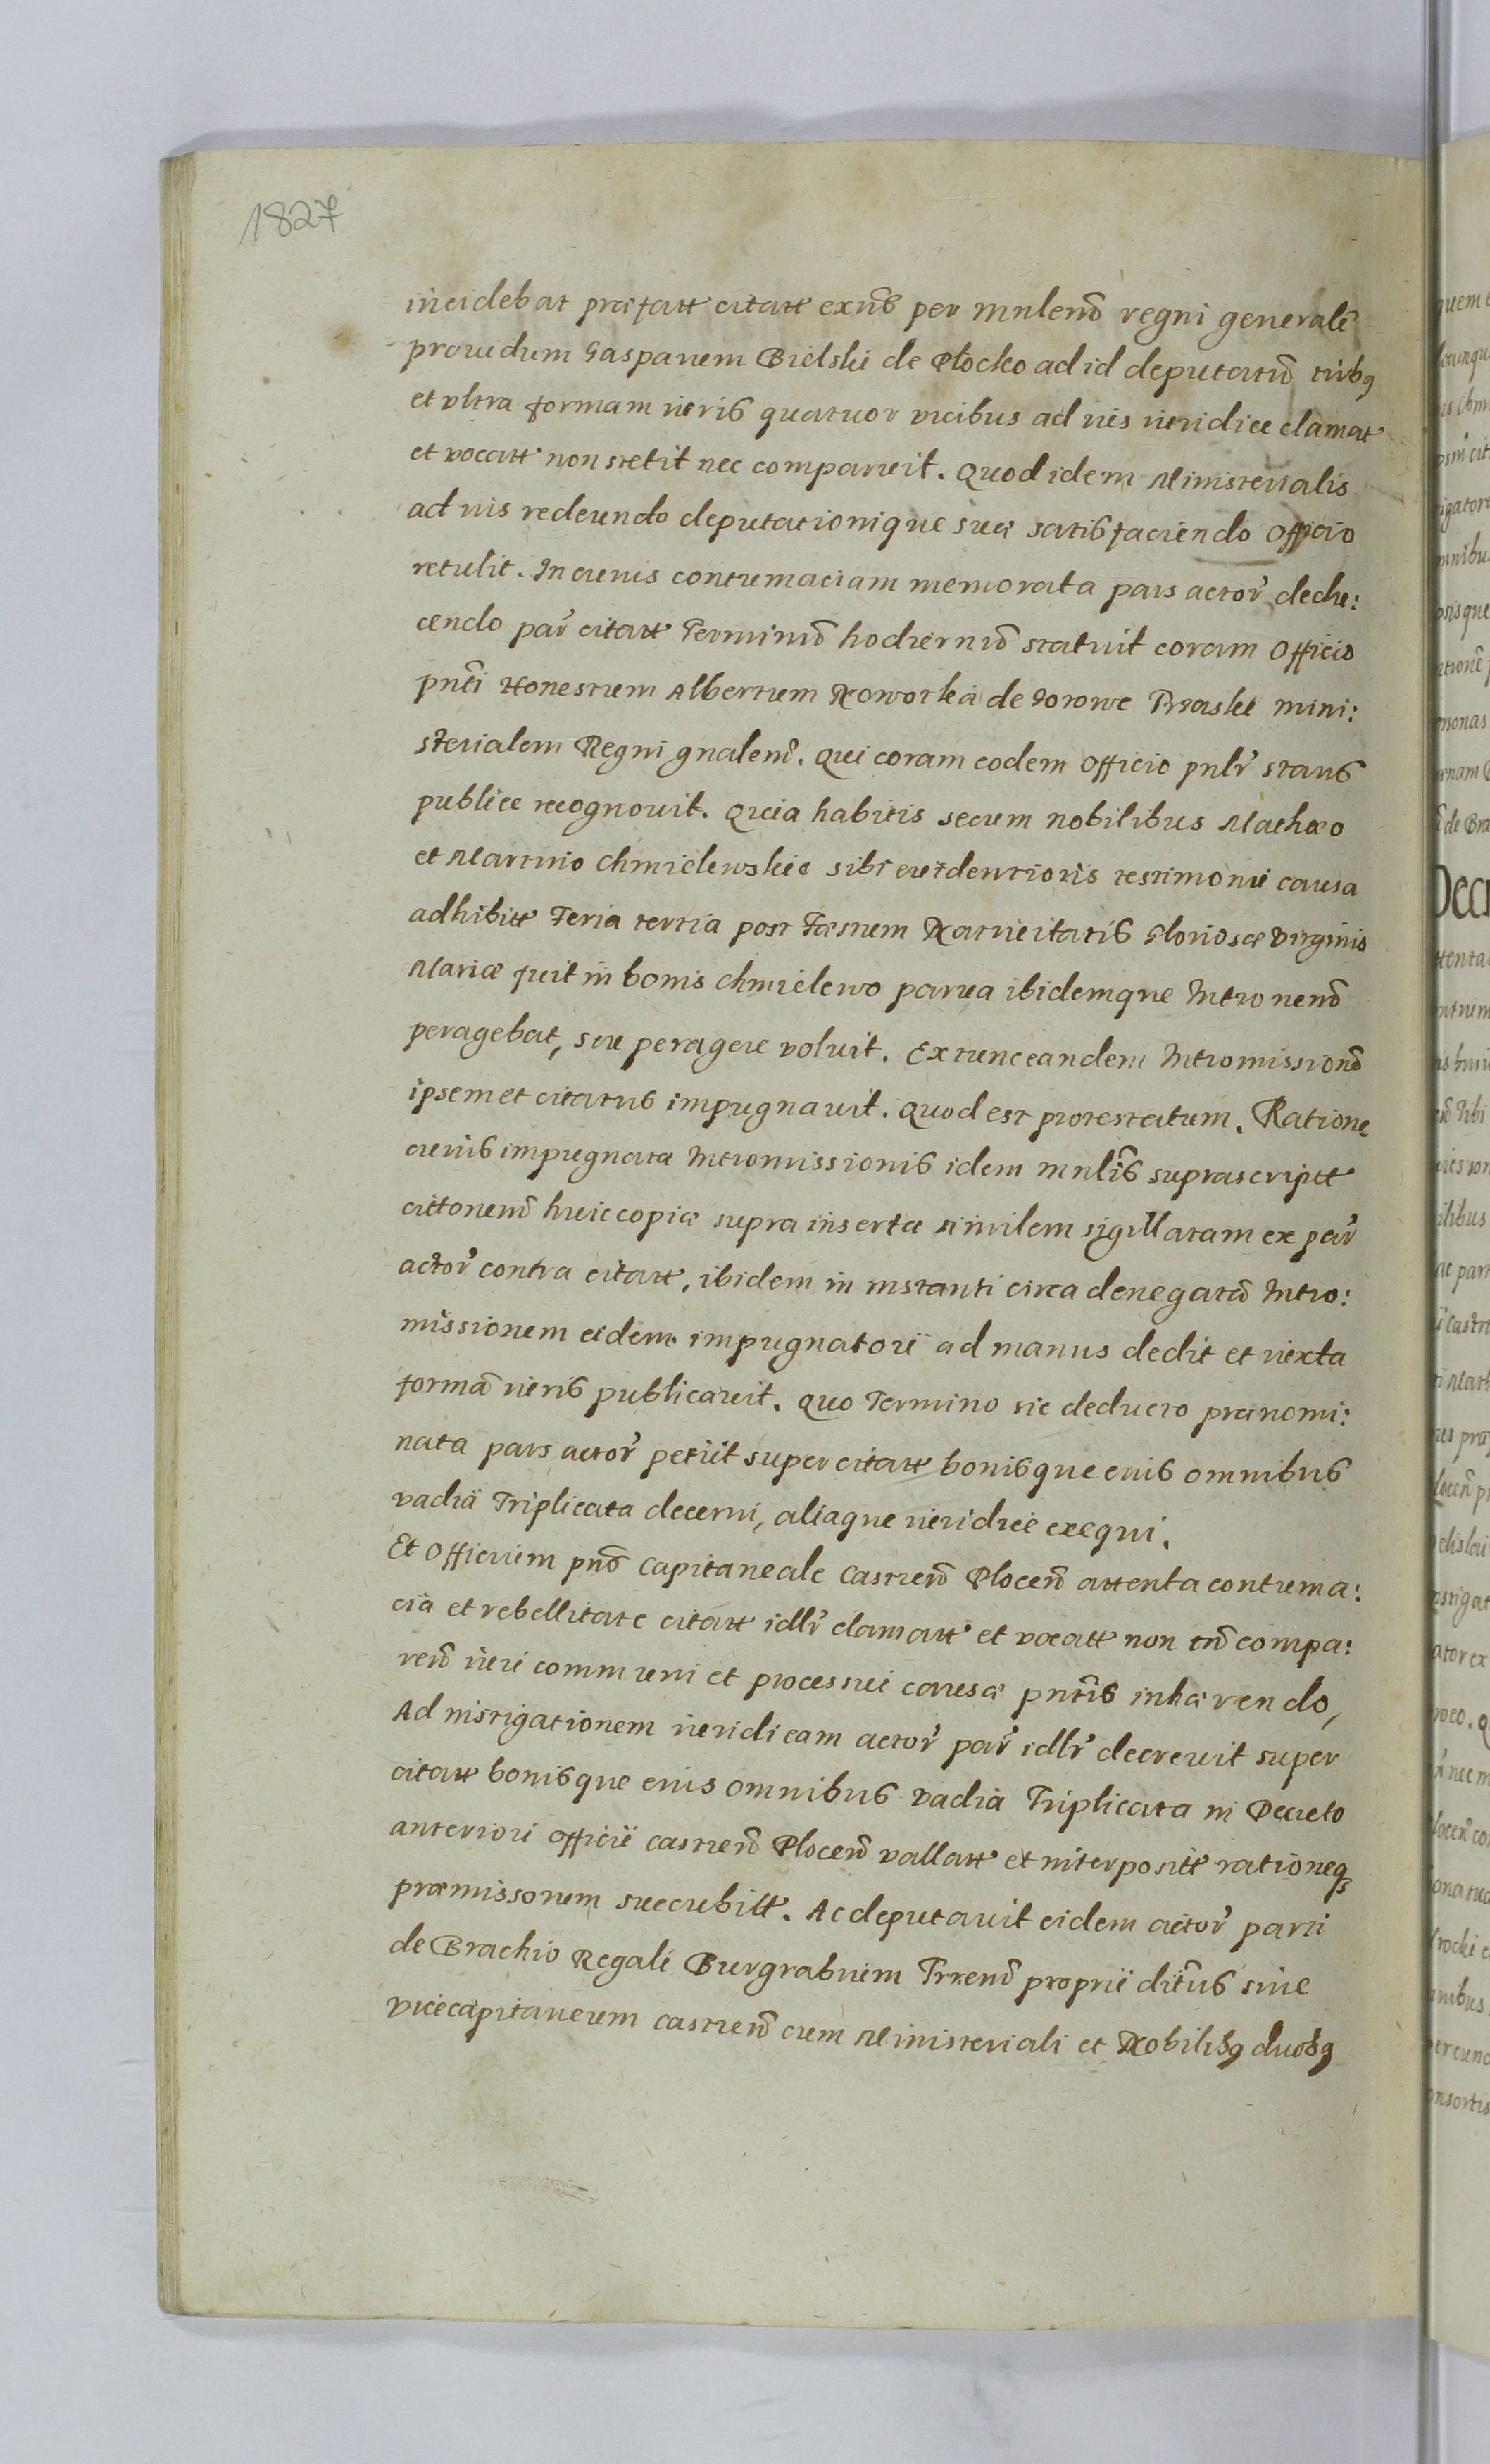 1827
incidebat præfatt citatt exñs per mnlem̃ regni generalẽ
prouidum Gasparem Bielski de Plocko ad id deputatũ tribꝫ
et vltra formam iuris quatuor vicibus ad iris iuridice clamat
et vocatt non stetit nec comparuit. Quod idem Ministerialis
ad iris redeundo deputationique suæ satisfaciendo officio
retulit. In cuius contumaciam memorata pars actor̃ doche:
cendo par̃ citatt Terminũ hodiernũ statuit coram officio
pnti Honestum Albertum Noworka de Borowe Trzaski mini:
sterialem Regni gnalem̃. Qui coram eodem officio pnlr̃ stans
publice recognouit. Quia habitis secum nobilibus Mathæo
et Martino Chmielewskie sibi euidentioris testimonii causa
adhibitt Feria tertia post Fæstum Natiuitatis Gloriosæ virginis
Mariæ fuit in bonis Chmielewo parua ibidemque Intronem̃
peragebat, seu peragere voluit. Ex tunc eandem Intromissionẽ
ipsemet citatus impugnauit. Quod est protestatum. Ratione
cuius impugnatæ Intromissionis idem mnlis̃ suprascriptt
cittonem̃ huic copiæ supra insertæ similem sigillatam ex par̃
actor̃ contra citatt, ibidem in instanti circa denegatã Intro:
missionem eidem impugnatori ad manus dedit et iuxta
formã iuris publicauit. Quo Termino sic deducto prænomi:
nata pars actor̃ petiit super citatt bonisque eius omnibus
vadia Triplicata decerni, aliaque iuridice exequi.
Et Officium pñs Capitaneale Castren̄ Plocen̄ attenta contuma:
cia et rebellitate citatt idlr̃ clamatt et vocatt non tñ compa:
ren̄ iuri communi et processui causæ pntis̃ inhærendo,
Ad instigationem iuridicam actor̃ par̃ idlr̃ decreuit super
citatt bonisque eius omnibus vadia Triplicata in Decreto
anteriori officii castren̄ Plocen̄ vallatt et interpositt rationeqꝫ
præmissorum succubitt. Ac deputauit eidem actor̃ parti
de Brachio Regali Burgrabium Trren̄ proprii ditñs siue
vicecapitaneum castren̄ cum Ministeriali et Nobilibꝫ duobꝫ